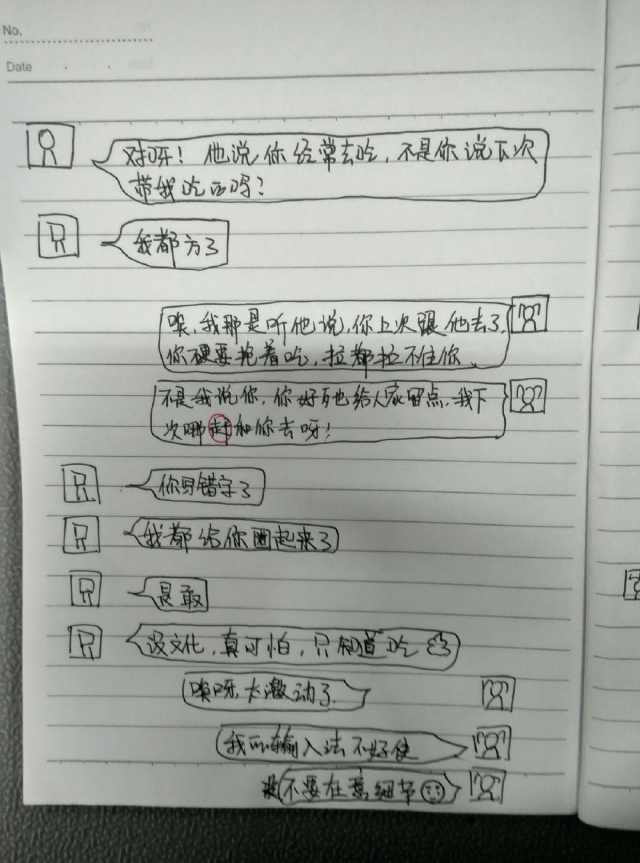 No.
Date
对呀！他说你经常去吃，不是你说下次
带我吃的吗？
我都方了
唉，我那是听他说，你上次跟他去了，
你硬要抱着吃，拉都拉不住你，
不是我说你，你好歹也给人家留点，我下
次哪和你去呀！
你写错字了
我都给你圈起来了
是敢
没文化，真可怕，只知道吃
哎呀，太激动了
我的输入法不好使
不要在意细节